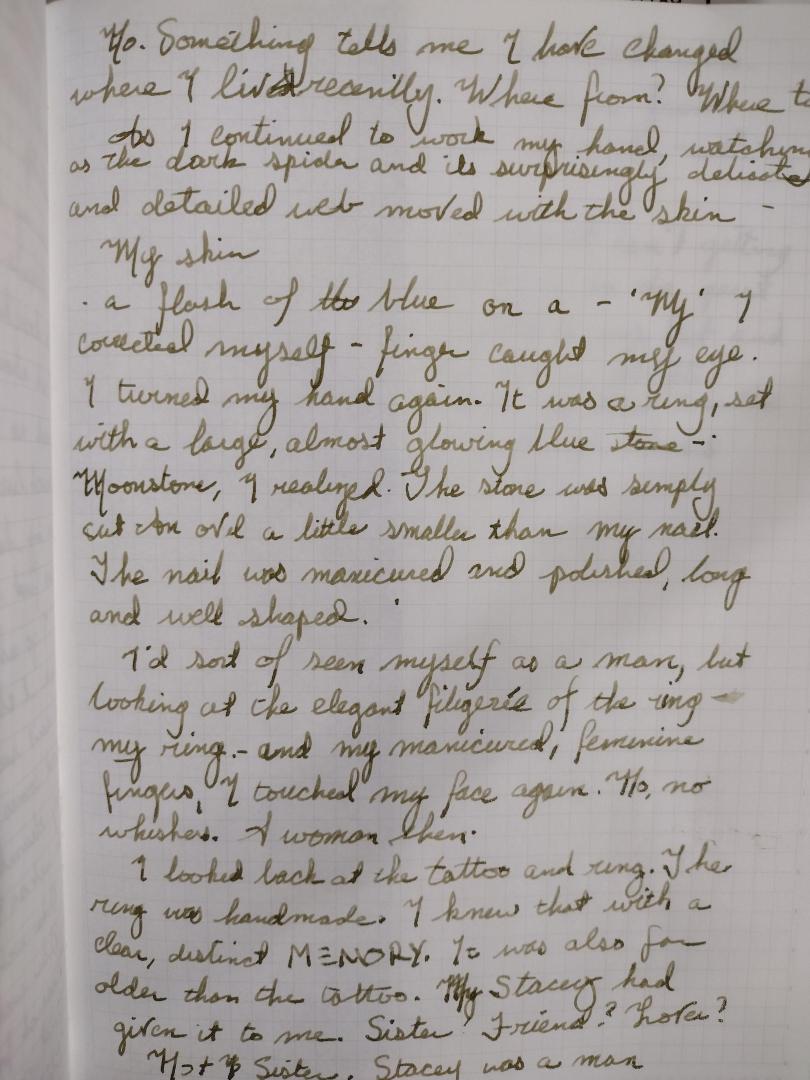 No. Something tells me I have changed
where I lived recently. Where from? Where to
As I continued to work my hand, watching
as the dark spider and its surprisingly delicate
and detailed web moved with the skin -
My skin
. a flash of the blue on a - 'My' I
corrected myself - finger caught my eye.
I turned my hand again. It was a ring, set
with a large, almost glowing blue stone -
Moonstone, I realized. The stone was simply
cut an ovil a little smaller than my nail.
The nail was manicured and polished, long
and well shaped.
I'd sort of seen myself as a man, but
looking at the elegant filigerie of the ring -
my ring. - and my manicured, feminine
fingers, I touched my face again. No, no
whiskers. A woman then.
I looked back at the tattoo and ring. The
ring was handmade. I knew that with a
clear, distinct MEMORY. It was also far
older than the tattoo. My Stacey had
given it to me. Sister? Friend? Lover?
Not Sister. Stacey was a man